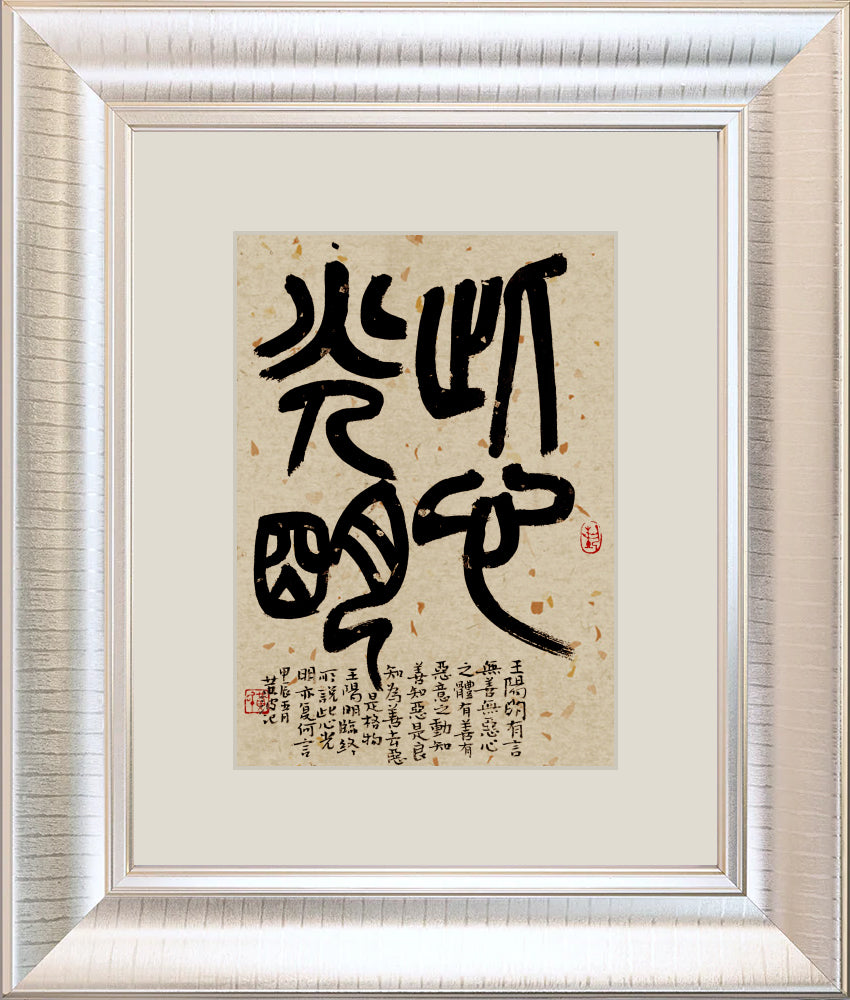 此心
光明
王陽明有言
無善無惡心
之體有善有
惡意之動知
善知惡是良
知為善去惡
是格物
王陽明臨終
所說此心光
明亦复何言
甲辰五月